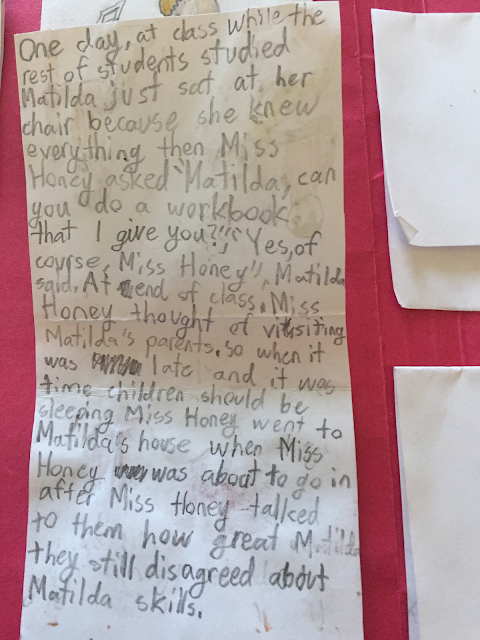 One day, at class while the
rest of students studied
Matilda just sat at her
chair because she knew
everything then Miss
Honey asked "Matilda, can
you do a workbook
that I give you?", "Yes, of
course, Miss Honey", Matilda
said. At end of class, Miss
Honey thought of visiting
Matilda's parents. so when it
was late and it was
time children should be
sleeping Miss Honey went to
Matilda's house when Miss
Honey was about to go in
after Miss Honey talked
to them how great Matilda
they still disagreed about
Matilda skills.